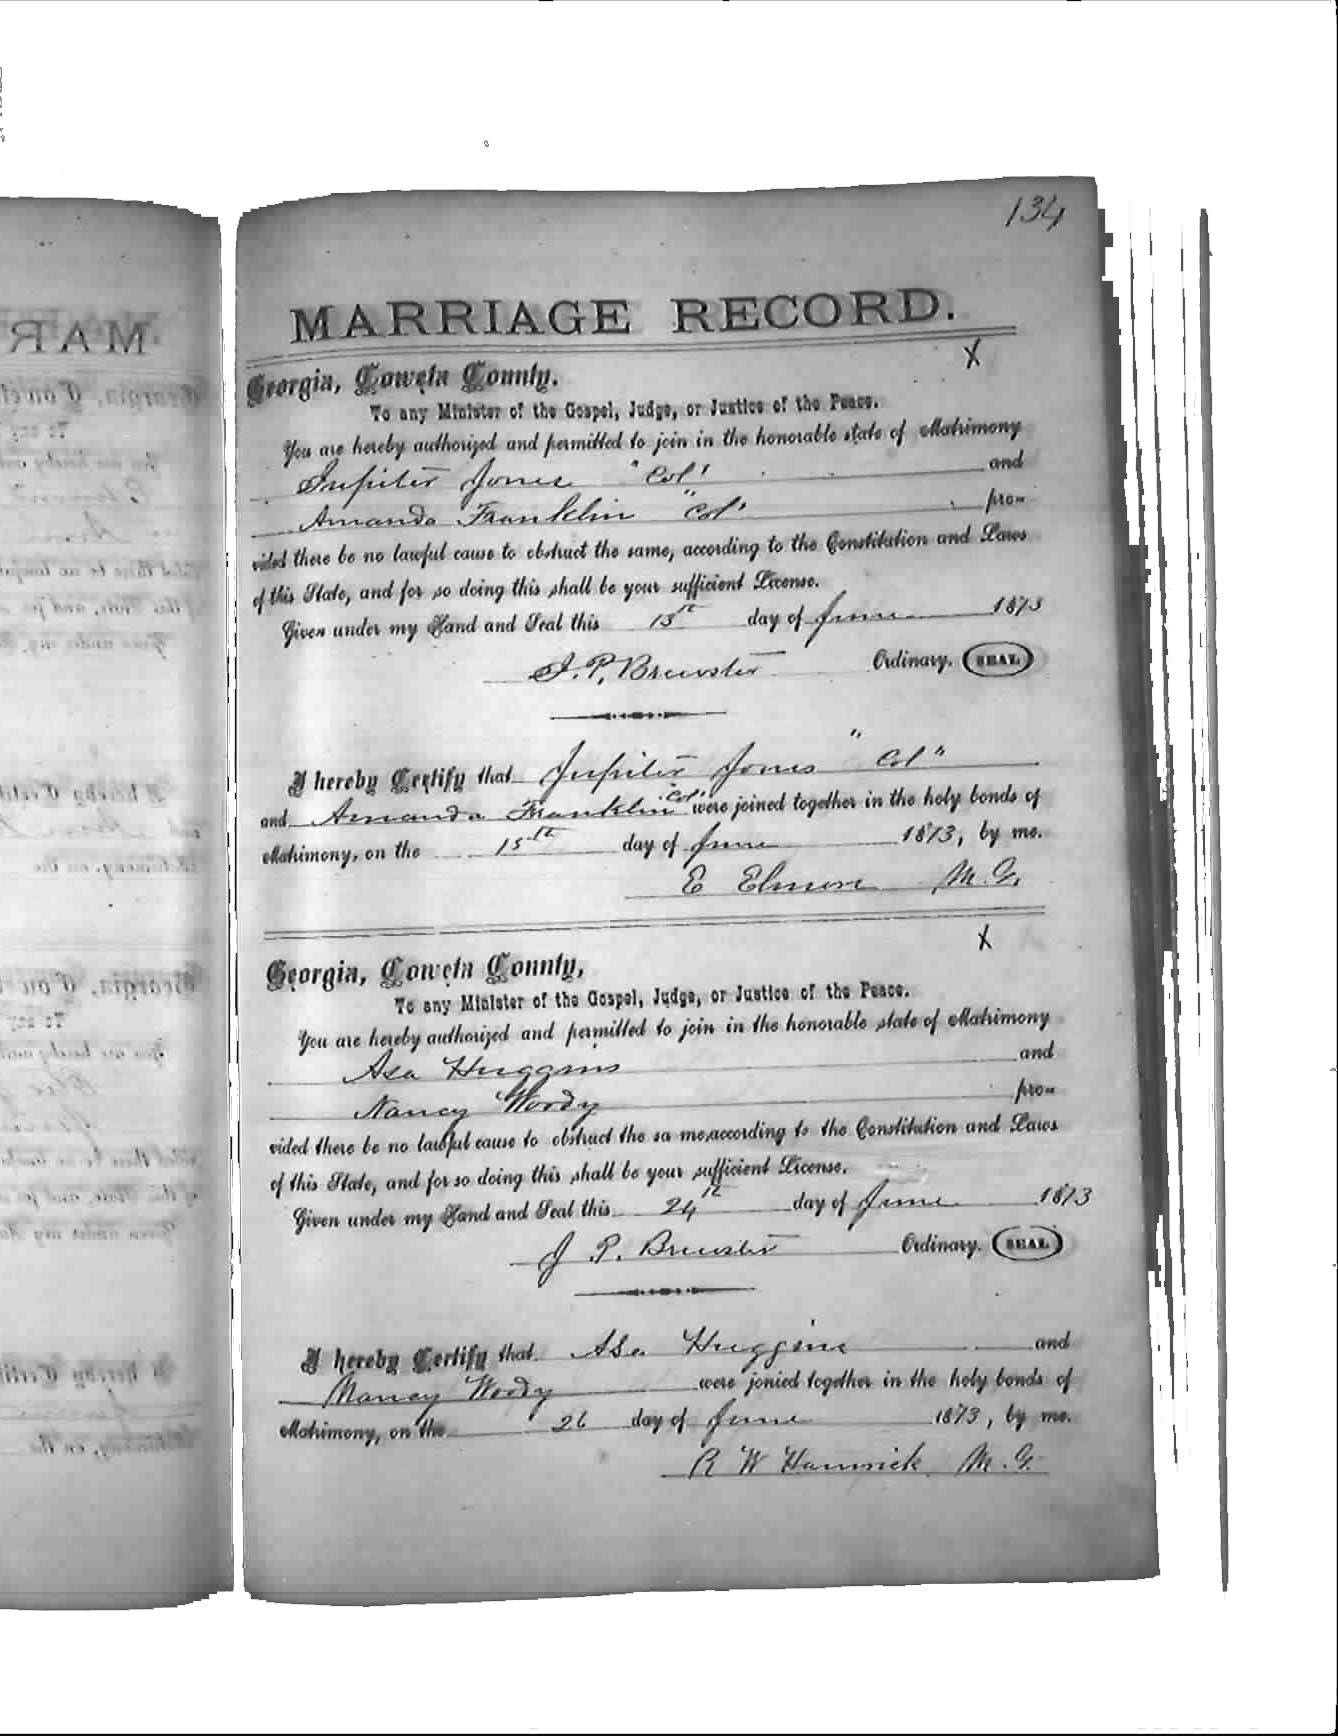 134
MARRIAGE RECORD.
X
Georgia, Coweta County.
To any Minister of the Gospel, Judge, or Justice of the Peace.
You are hereby authorized and permitted to join in the honorable state of Matrimony
Jupiter Jones "Col" and
Amanda Franklin "Col" pro-
vided there be no lawful cause to obstruct the same, according to the Constitution and Laws
of this State, and for so doing this shall be your sufficient License.
Given under my Hand and Seal this 13th day of June 1873
J. P. Brewster Ordinary. SEAL
I hereby Certify that Jupiter Jones "Col"
and Amanda Franklin "Col" were joined together in the holy bonds of
Matrimony, on the 15th day of June 1873, by me.
E Elmore M. G.
X
Georgia, Coweta County,
To any Minister of the Gospel, Judge, or Justice of the Peace.
You are hereby authorized and permitted to join in the honorable state of Matrimony
Asa Huggins and
Nancy Woody pro-
vided there be no lawful cause to obstruct the sa me,according to the Constitution and Laws
of this State, and for so doing this shall be your sufficient License.
Given under my Hand and Seal this 24th day of June 1873
J P. Brewster Ordinary. SEAL
I hereby Certify that Asa Huggins and
Nancy Woody were jonied together in the holy bonds of
Matrimony, on the 26 day of June 1873, by me.
R W Hamrick M. G.